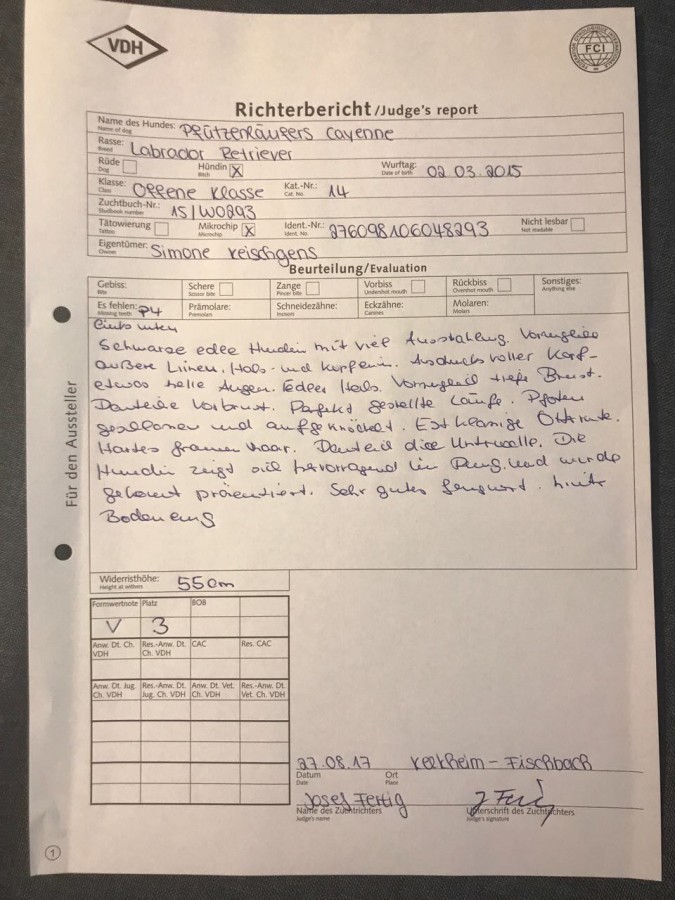 VDH
FCI
Richterbericht / Judge's report
Name des Hundes: Pfützenläufers Cayenne
Name of dog
Rasse: Labrador Retriever
Breed
Rüde Hündin X Wurftag: 02.03.2015
Dog Bitch Date of birth
Klasse: Offene Klasse Kat.-Nr.: 14
Class Cat. No.
Zuchtbuch-Nr.: 15/W0293
Studbook number
Tätowierung Mikrochip X Ident.-Nr.: 276098106048293 Nicht lesbar
Tattoo Microchip Ident. No. Not readable
Eigentümer: Simone
Owner
Beurteilung/Evaluation
Gebiss: Schere Zange Vorbiss Rückbiss Sonstiges:
Bite Scissor bite Pincer bite Undershot mouth Overshot mouth Anything else
Es fehlen: P4 Prämolare: Schneidezähne: Eckzähne: Molaren:
Missing teeth Premolars Incisors Canines Molars
links unten
Schwarze edle Hündin mit viel Ausstrahlung.
äußere Linien, Hals- und Ausdrucksvoller Kopf-
etwas helle Augen. Edler Hals. tiefe Brust.
Deutliche Vorbrust. Perfekt gestellte Läufe. Pfoten
geschlossen und aufgeknöchelt. Erstklassige Otterrute.
Hartes Haar. Deutlich dicke Unterwolle. Die
Hündin zeigt sich hervorragend im Ring und wurde
gekonnt präsentiert. Sehr gutes
Boden eng
Für den Aussteller
Widerristhöhe: 55cm
Height at withers
Formwertnote Platz BOB
V 3
Anw. Dt. Ch. VDH Res.-Anw. Dt. Ch. VDH CAC Res. CAC
Anw. Dt. Jug. Ch. VDH Res.-Anw. Dt. Jug. Ch. VDH Anw. Dt. Vet. Ch. VDH Res.-Anw. Dt. Vet. Ch. VDH
27.08.17 Kelkheim-Fischbach
Datum Ort
Date Place
Josef Fertig
Name des Zuchtrichters Unterschrift des Zuchtrichters
Judge's name Judge's signature
1